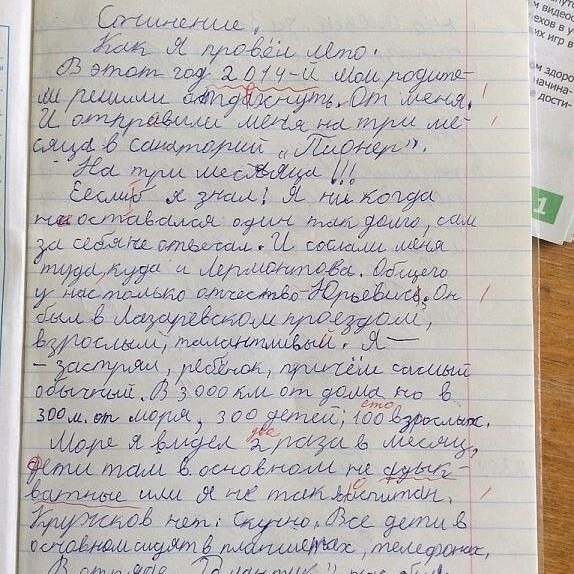 Сочинение.
Как я провёл лето.
В этот год 2014-й мои родите-
ли решили отдахнуть. От меня.
И отправили меня на три ме-
сяца в санаторий „Пионер".
На три месяца!!!
Еслиб я знал! Я ни когда
не оставался один так долго, сам
за себя не отвечал. И сослали меня
туда, куда и Лермонтова. Общего
у нас только отчество - Юрьевич. Он
был в Лазаревском проездом,
взрослый, талантливый. Я —
- застрял, ребёнок, причём самый
обычный. В 3000 км от дома но в
300 м. от моря, 300 детей; 100 взрослых.
сто
Море я видел 2 раза в месяц,
два
дети там в основном не адык-
ватные или я не так воспитан.
Кружков нет: Скучно. Все дети в
основном сидят в планшетах, телефонах.
В отряде
1
видео
ехов в у
их игр в
м здоро
начина-
дости-